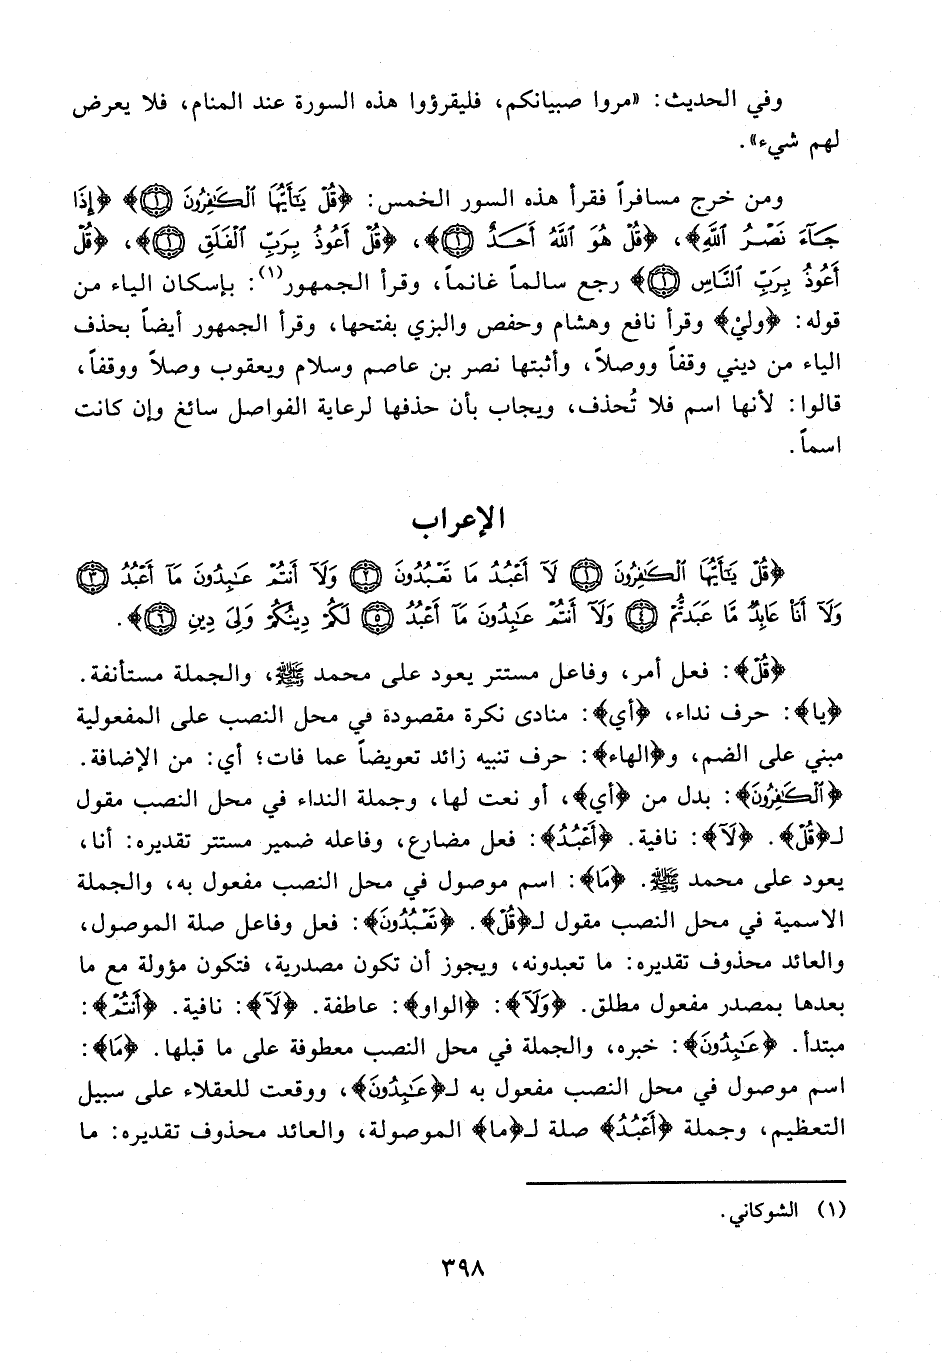 وفي الحديث: «مروا صبيانكم، فليقرؤوا هذه السورة عند المنام، فلا يعرض
لهم شيء».
ومن خرج مسافراً فقرأ هذه السور الخمس: ﴿قُلْ يَٰٓأَيُّهَا ٱلْكَٰفِرُونَ ١﴾ ﴿إِذَا
جَآءَ نَصْرُ ٱللَّهِ﴾، ﴿قُلْ هُوَ ٱللَّهُ أَحَدٌ ١﴾، ﴿قُلْ أَعُوذُ بِرَبِّ ٱلْفَلَقِ ١﴾، ﴿قُلْ
أَعُوذُ بِرَبِّ ٱلنَّاسِ ١﴾ رجع سالماً غانماً، وقرأ الجمهور(١): بإسكان الياء من
قوله: ﴿وليْ﴾ وقرأ نافع وهشام وحفص والبزي بفتحها، وقرأ الجمهور أيضاً بحذف
الياء من ديني وقفاً ووصلاً، وأثبتها نصر بن عاصم وسلام ويعقوب وصلاً ووقفاً،
قالوا: لأنها اسم فلا تُحذف، ويجاب بأن حذفها لرعاية الفواصل سائغ وإن كانت
اسماً.
الإعراب
﴿قُلْ يَٰٓأَيُّهَا ٱلْكَٰفِرُونَ ١ لَآ أَعْبُدُ مَا تَعْبُدُونَ ٢ وَلَآ أَنتُمْ عَٰبِدُونَ مَآ أَعْبُدُ ٣
وَلَآ أَنَا۠ عَابِدٌ مَّا عَبَدتُّمْ ٤ وَلَآ أَنتُمْ عَٰبِدُونَ مَآ أَعْبُدُ ٥ لَكُمْ دِينُكُمْ وَلِىَ دِينِ ٦﴾.
﴿قُلْ﴾: فعل أمر، وفاعل مستتر يعود على محمد ﷺ، والجملة مستأنفة.
﴿يا﴾: حرف نداء، ﴿أي﴾: منادى نكرة مقصودة في محل النصب على المفعولية
مبني على الضم، و﴿الهاء﴾: حرف تنبيه زائد تعويضاً عما فات؛ أي: من الإضافة.
﴿ٱلْكَٰفِرُونَ﴾: بدل من ﴿أي﴾، أو نعت لها، وجملة النداء في محل النصب مقول
لـ﴿قُلْ﴾. ﴿لَآ﴾: نافية. ﴿أَعْبُدُ﴾: فعل مضارع، وفاعله ضمير مستتر تقديره: أنا،
يعود على محمد ﷺ. ﴿مَا﴾: اسم موصول في محل النصب مفعول به، والجملة
الاسمية في محل النصب مقول لـ﴿قُلْ﴾. ﴿تَعْبُدُونَ﴾: فعل وفاعل صلة الموصول،
والعائد محذوف تقديره: ما تعبدونه، ويجوز أن تكون مصدرية، فتكون مؤولة مع ما
بعدها بمصدر مفعول مطلق. ﴿وَلَآ﴾: ﴿الواو﴾: عاطفة. ﴿لَآ﴾: نافية. ﴿أَنتُمْ﴾:
مبتدأ. ﴿عَٰبِدُونَ﴾: خبره، والجملة في محل النصب معطوفة على ما قبلها. ﴿مَا﴾:
اسم موصول في محل النصب مفعول به لـ﴿عَٰبِدُونَ﴾، ووقعت للعقلاء على سبيل
التعظيم، وجملة ﴿أَعْبُدُ﴾ صلة لـ﴿ما﴾ الموصولة، والعائد محذوف تقديره: ما
(١) الشوكاني.
٣٩٨